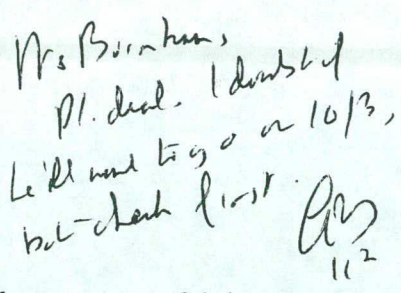 Ms Burnham,
Pl. deal. I doubt if
he'll want to go on 10/3,
but check first.
11 2